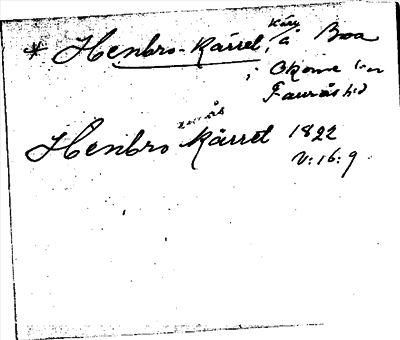 * Henbro-Kärret, kärr å Boa
i Okome s:n
Faurås h:d
Henbro kärret 1822
V:16:9